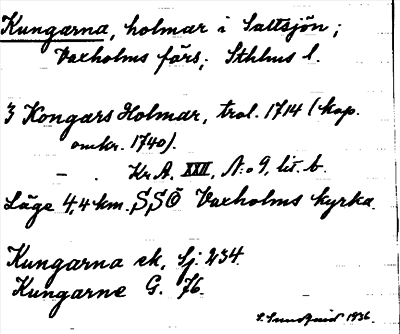 Kungarna, holmar i Saltsjön;
Vaxholms förs; Sthlms l.
3 Kongars Holmar, trol. 1714 (kop.
omkr. 1740).
— . Kr.A. XXII, N:o 9, lit. b.
Läge 4,4 km. SSÖ Vaxholms kyrka.
Kungarna ek, Sj: 234.
Kungarne G. 76.
1936.